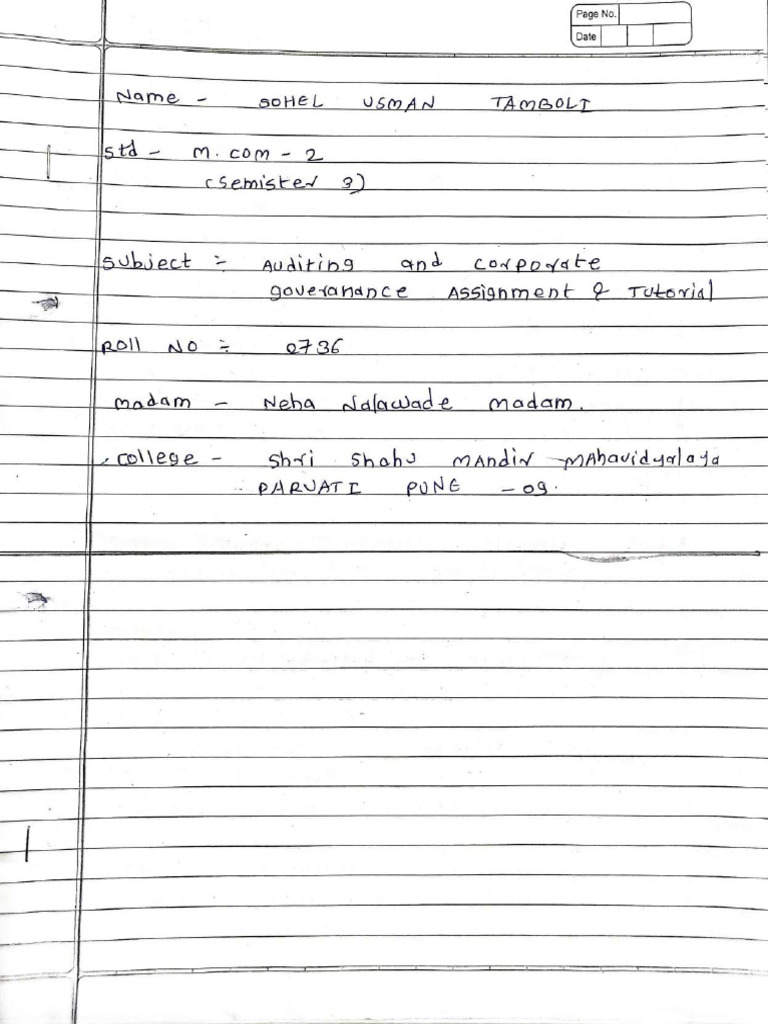 Page No.
Date
Name - SOHEL USMAN TAMBOLI
Std - M. COM - 2
(Semister 3)
Subject :- Auditing and corporate
goveranance Assignment & Tutorial
Roll NO :- 0736
madam - Neha Nalawade madam.
college - Shri Shahu MAndir MAhavidyalaya
PARVATI PUNE -09.